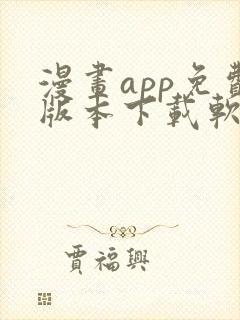 漫畫app免費
版本下載軟
賈福興